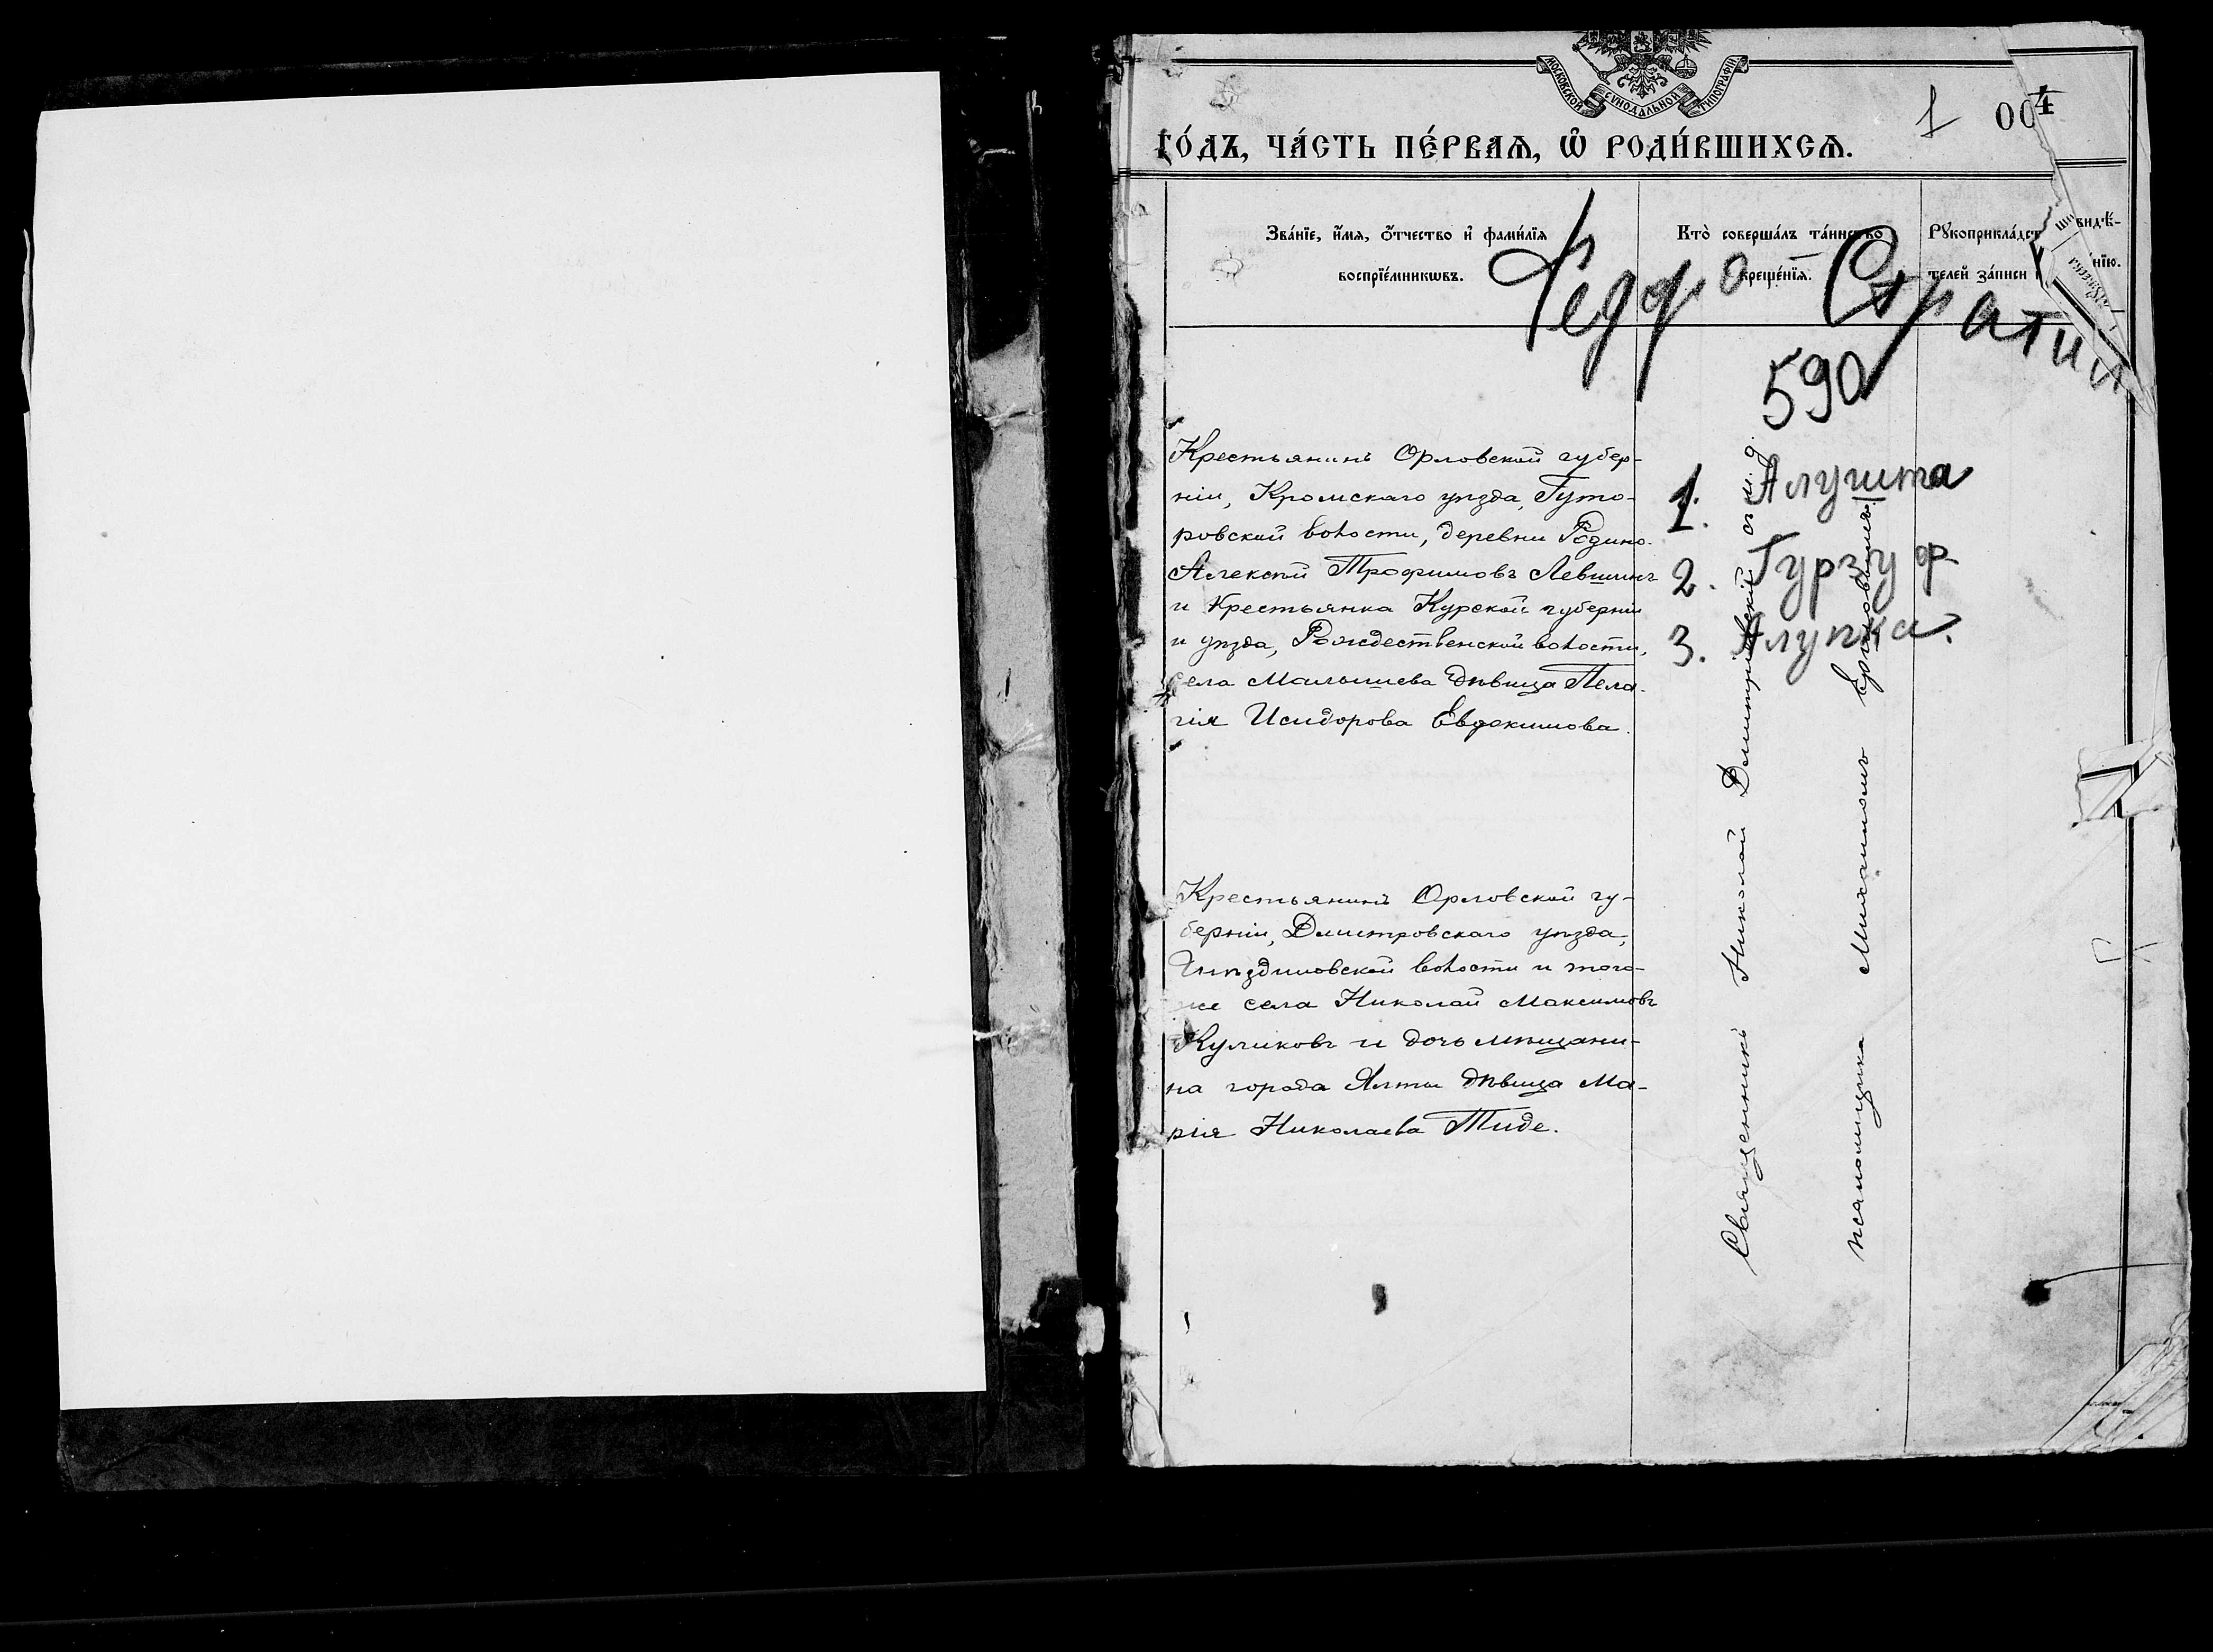 МОСКОВСКОЙ СѴНОДАЛЬНОЙ ТИПОГРАФІИ
1 004
ГО́ДЪ, ЧА́СТЬ ПЕ́РВАѦ, Ѽ РОДИ́ВШИХСѦ.
Зва́нїе, и҆́мѧ, ѻ҆́тчество и҆ фами́лїѧ
воспрїе́мникѡвъ.
Кто̀ соверша́лъ та́инство
креще́нїѧ.
Рꙋкоприкла́дст видѣ́-
телей за́писи нїю.
590
1. Алушта
2. Гурзуф
3. Алупка.
Крестьянинъ Орловской губер-
ніи, Кромскаго уѣзда, Гуто-
ровской волости, деревни Родино
Алексѣй Трофимовъ Левшинъ
и крестьянка Курской губерніи
и уѣзда, Рождественской волости,
села Малышева дѣвица Пела-
гія Исидорова Евдокимова.
Крестьянинъ Орловской гу-
берніи, Дмитровскаго уѣзда,
волости и того-
же села Николай Максимовъ
Куликовъ и дочь мѣщани-
на города Ялты дѣвица Ма-
рія Николаева Тиде.
Священникъ Николай Димитріевскій съ и. д.
псаломщика Михаиломъ